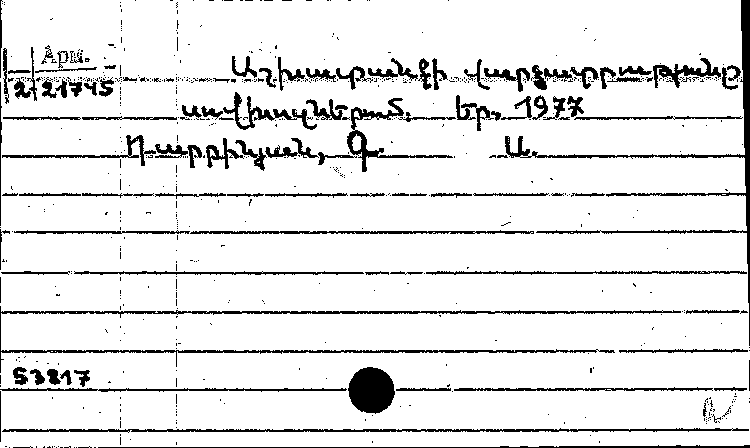 Арм.
2-21745
Աշխատանքի վարձատրությունը
սովխոզներում. Եր., 1977
Դարբինյան, Գ. Ա.
53817